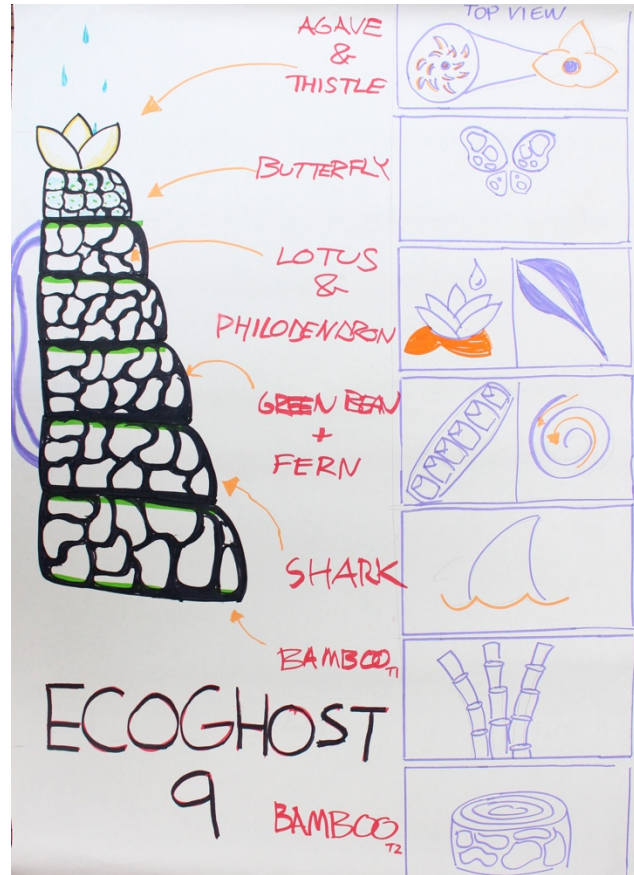 TOP VIEW
AGAVE
&
THISTLE
BUTTERFLY
LOTUS
&
PHILODENDRON
GREEN BEAN
+
FERN
SHARK
BAMBOO T1
ECOGHOST
9
BAMBOO T2